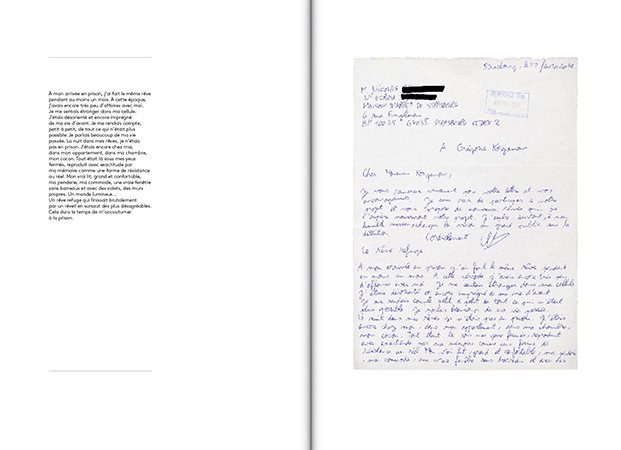 À mon arrivée en prison, j'ai fait le même rêve
pendant au moins un mois. À cette époque,
j'avais encore très peu d'affaires avec moi.
Je me sentais étranger dans ma cellule.
J'étais désorienté et encore imprégné
de ma vie d'avant. Je me rendais compte,
petit à petit, de tout ce qui n'était plus
possible. Je parlais beaucoup de ma vie
passée. La nuit dans mes rêves, je n'étais
pas en prison. J'étais encore chez moi,
dans mon appartement, dans ma chambre,
mon cocon. Tout était là sous mes yeux
fermés, reproduit avec exactitude par
ma mémoire comme une forme de résistance
au réel. Mon vrai lit, grand et confortable,
ma penderie, ma commode, une vraie fenêtre
sans barreaux et avec des volets, des murs
propres. Un monde lumineux...
Un rêve refuge qui finissait brutalement
par un réveil en sursaut des plus désagréables.
Cela dura le temps de m'accoutumer
à la prison.
Strasbourg, le
M. NICOLAS
N° ECROU
MAISON D'ARRÊT DE STRASBOURG
6 rue
STRASBOURG CEDEX 2
À Grégoire Korganow
Cher Monsieur Korganow,
Je vous remercie vivement pour votre lettre et vos
encouragements. Je suis ravi de participer à votre
projet et vous propose de nouveaux rêves qui, je
l'espère nourriront votre projet.
la vision du grand public sur la
détention.
Cordialement
Le rêve refuge
A mon arrivée en prison j'ai fait le même rêve pendant
au moins un mois. A cette époque j'avais encore très peu
d'affaires avec moi. Je me sentais étranger dans ma cellule
J'étais désorienté et encore imprégné de ma vie d'avant.
Je me rendais compte petit à petit de tout ce qui n'était
plus possible. Je parlais beaucoup de ma vie passée.
La nuit dans mes rêves, je n'étais pas en prison. J'étais
encore chez moi, dans mon appartement, dans ma chambre,
mon cocon. Tout était là sous mes yeux fermés, reproduit
avec exactitude par ma mémoire comme une forme de
résistance au réel. Mon vrai lit, grand et confortable, ma penderie
, ma commode, une vraie fenêtre sans barreaux et avec des